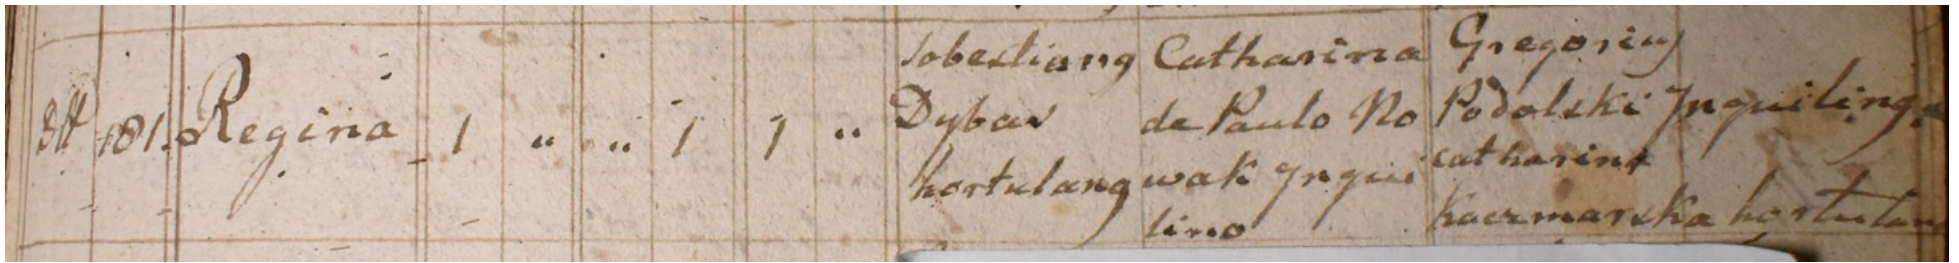 181. Regina 1 " " 1 1 "
Sobestianus
Dybas
hortulanus
Catharina
de Paulo No
wak Inqui
lino
Gregorius
Podolski Inquilinus
Catharina
Kaczmarska hortulana